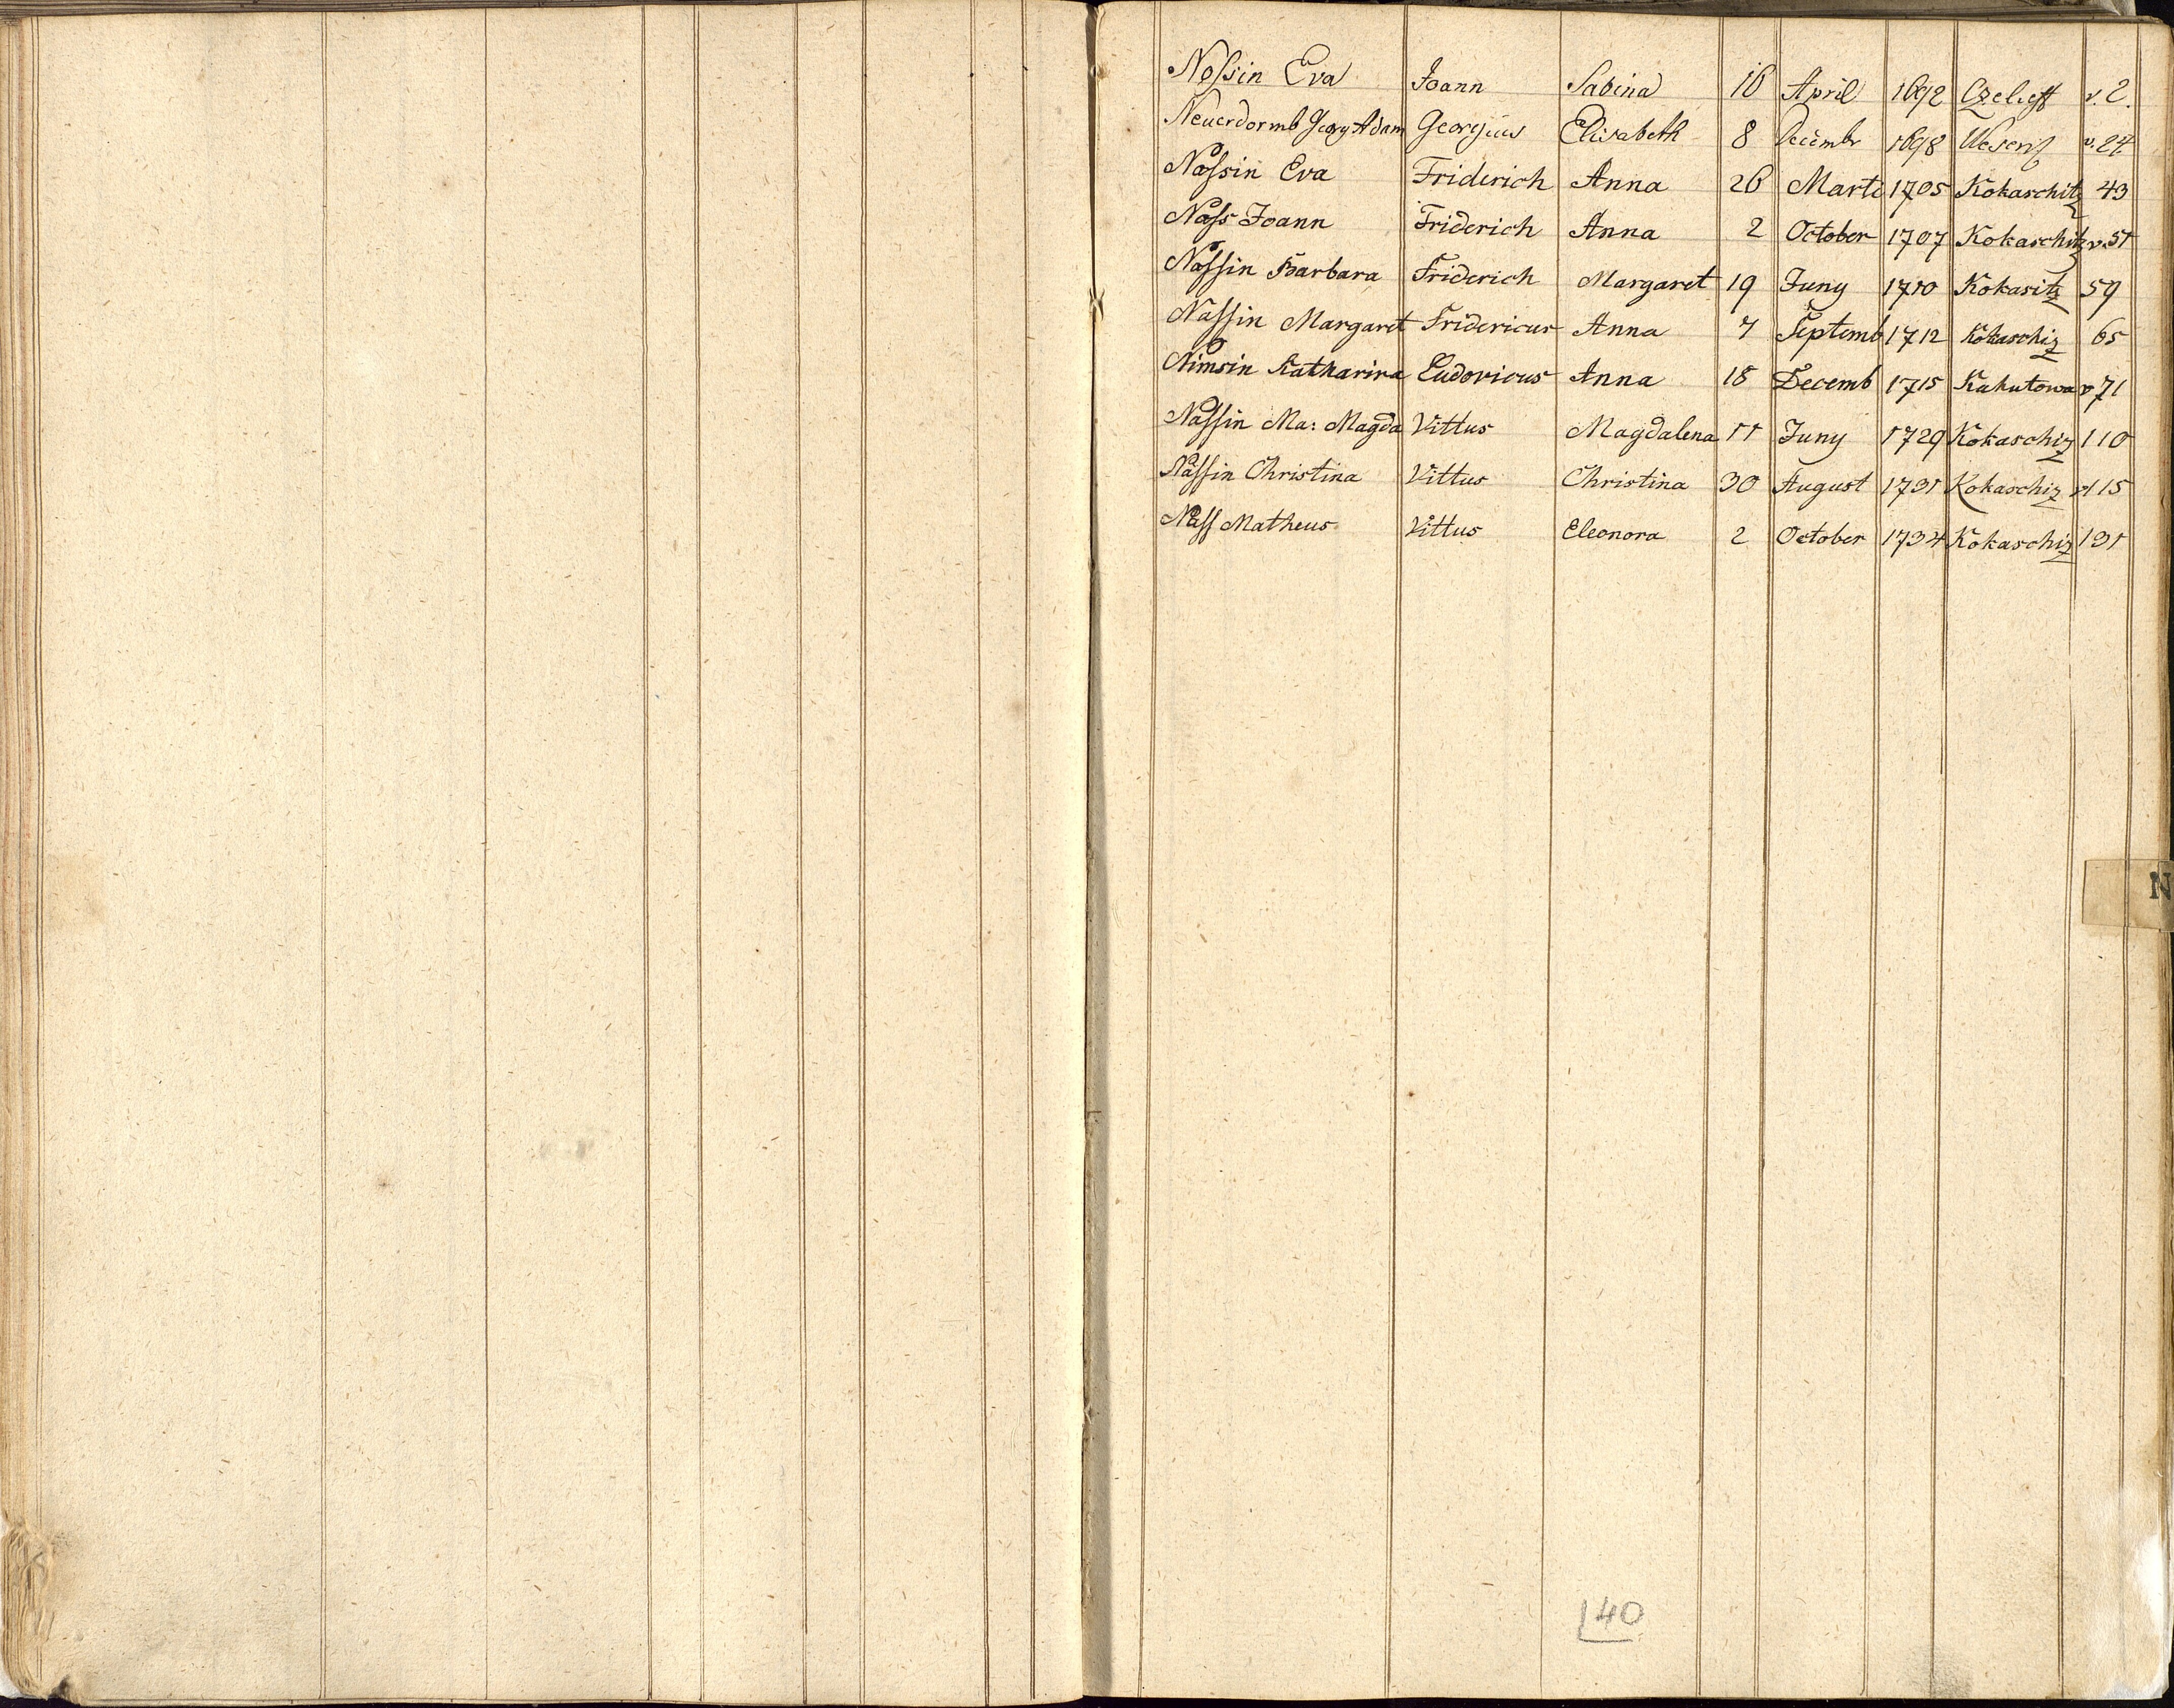 Nossin Eva Joann Sabina 16 April 1692 v. 2.
Neuerdormb Georg Adam Georgius Elisabeth 8 Decembr 1698 v. 24
Nassin Eva Friderich Anna 26 Marti 1705 Kokaschitz 43
Nass Joann Friderich Anna 2 October 1707 Kokaschitz v. 51
Nassin Barbara Friderich Margaret 19 Juny 1710 Kokasitz 59
Nassin Margaret Fridericus Anna 7 Septemb 1712 Kokaschiz 65
Nimsin Katharina Ludovicus Anna 18 Decemb 1715 Kahutowa v 71
Nassin Ma: Magda Vittus Magdalena 11 Juny 1729 Kokaschiz 110
Nassin Christina Vittus Christina 30 August 1731 Kokaschiz v 115
Nass Matheus Vittus Eleonora 2 October 1734 Kokaschiz 131
N
140